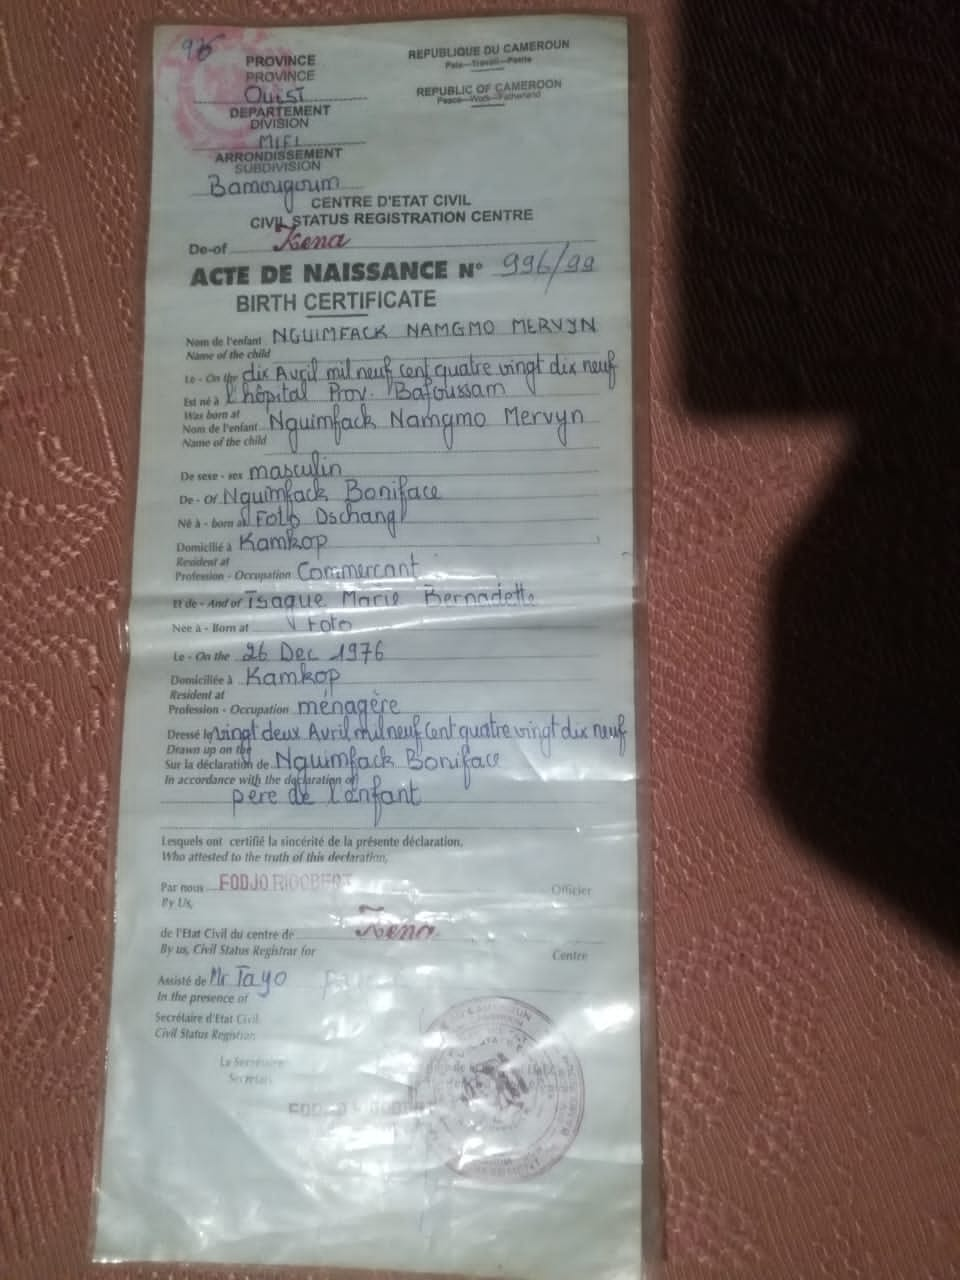 976
PROVINCE
PROVINCE
OUEST
DEPARTEMENT
DIVISION
MIFI
ARRONDISSEMENT
SUBDIVISION
Bamougoum
REPUBLIQUE DU CAMEROUN
Paix—Travail—Patrie
REPUBLIC OF CAMEROON
Peace—Work—Fatherland
CENTRE D'ETAT CIVIL
CIVIL STATUS REGISTRATION CENTRE
De-of Kena
ACTE DE NAISSANCE N° 996/99
BIRTH CERTIFICATE
Nom de l'enfant NGUIMFACK NAMGMO MERVYN
Name of the child
Le - On the dix Avril mil neuf cent quatre vingt dix neuf
Est né à l'hôpital Prov. Bafoussam
Was born at
Nom de l'enfant Nguimfack Namgmo Mervyn
Name of the child
De sexe - sex masculin
De - Of Nguimfack Boniface
Né à - born at Foto Dschang
Domicilié à Kamkop
Resident at
Profession - Occupation Commercant
Et de - And of Tsague Marie Bernadette
Née à - Born at Foto
Le - On the 26 Dec 1976
Domiciliée à Kamkop
Resident at
Profession - Occupation ménagère
Dressé le vingt deux Avril mil neuf cent quatre vingt dix neuf
Drawn up on the
Sur la déclaration de Nguimfack Boniface
In accordance with the declaration of
père de l'enfant
Lesquels ont certifié la sincérité de la présente déclaration.
Who attested to the truth of this declaration,
Par nous FODJO RIGOBERT Officier
By Us,
de l'Etat Civil du centre de Kena
By us, Civil Status Registrar for Centre
Assisté de Mr Tayo
In the presence of
Secrétaire d'Etat Civil
Civil Status Registrar
Le Secrétaire
Secretary
FODJO RIGOBERT